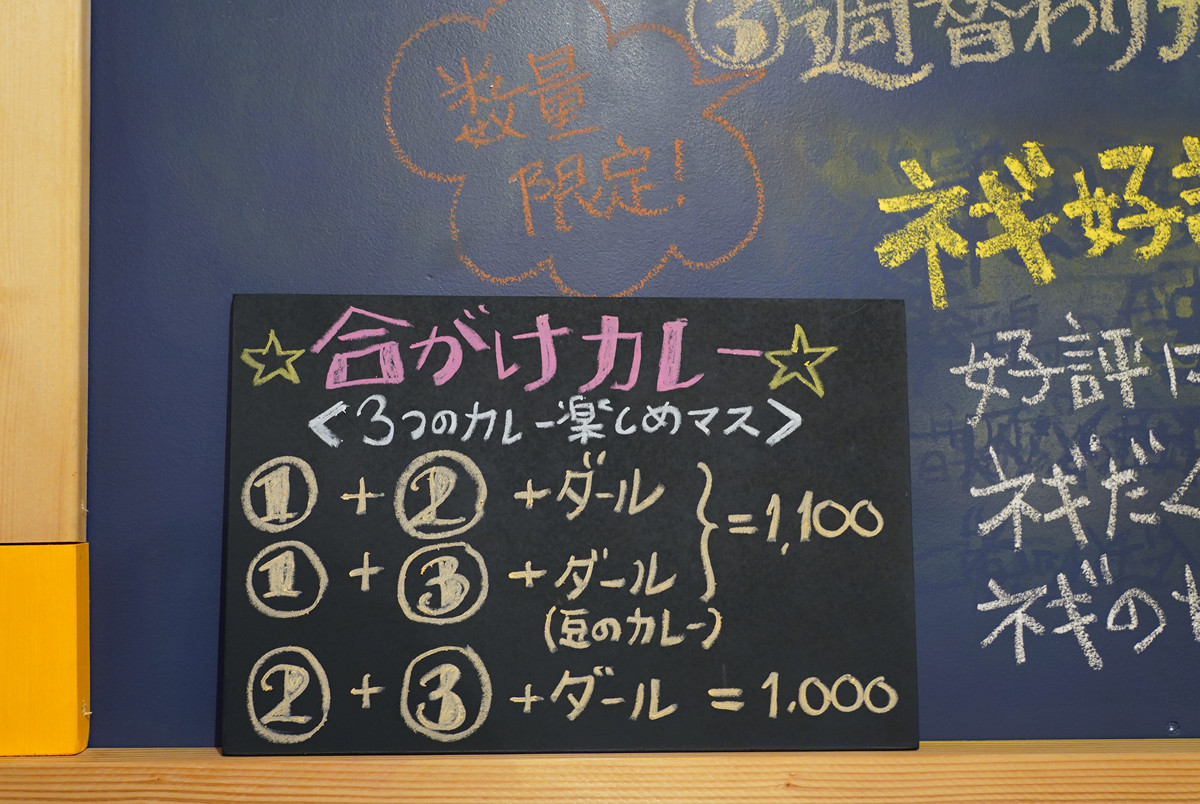 ③週替わり
数量
限定!
ネギ好評
好評に
ネギだく
ネギの
☆合がけカレー☆
<3つのカレー楽しめマス>
① + ② + ダール
① + ③ + ダール } = 1,100
(豆のカレー)
② + ③ + ダール = 1.000